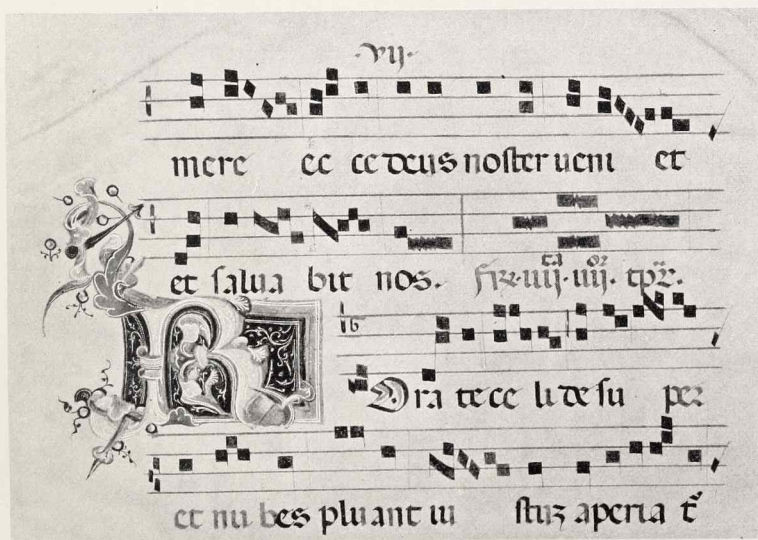 ·VII·
mere ec ce deus noster ueni et
et salua bit nos. fr̄e·iiij·iiij. tp̄r.
R Ora te ce li de su per
et nu bes pluant iu stuꝫ aperia t̄